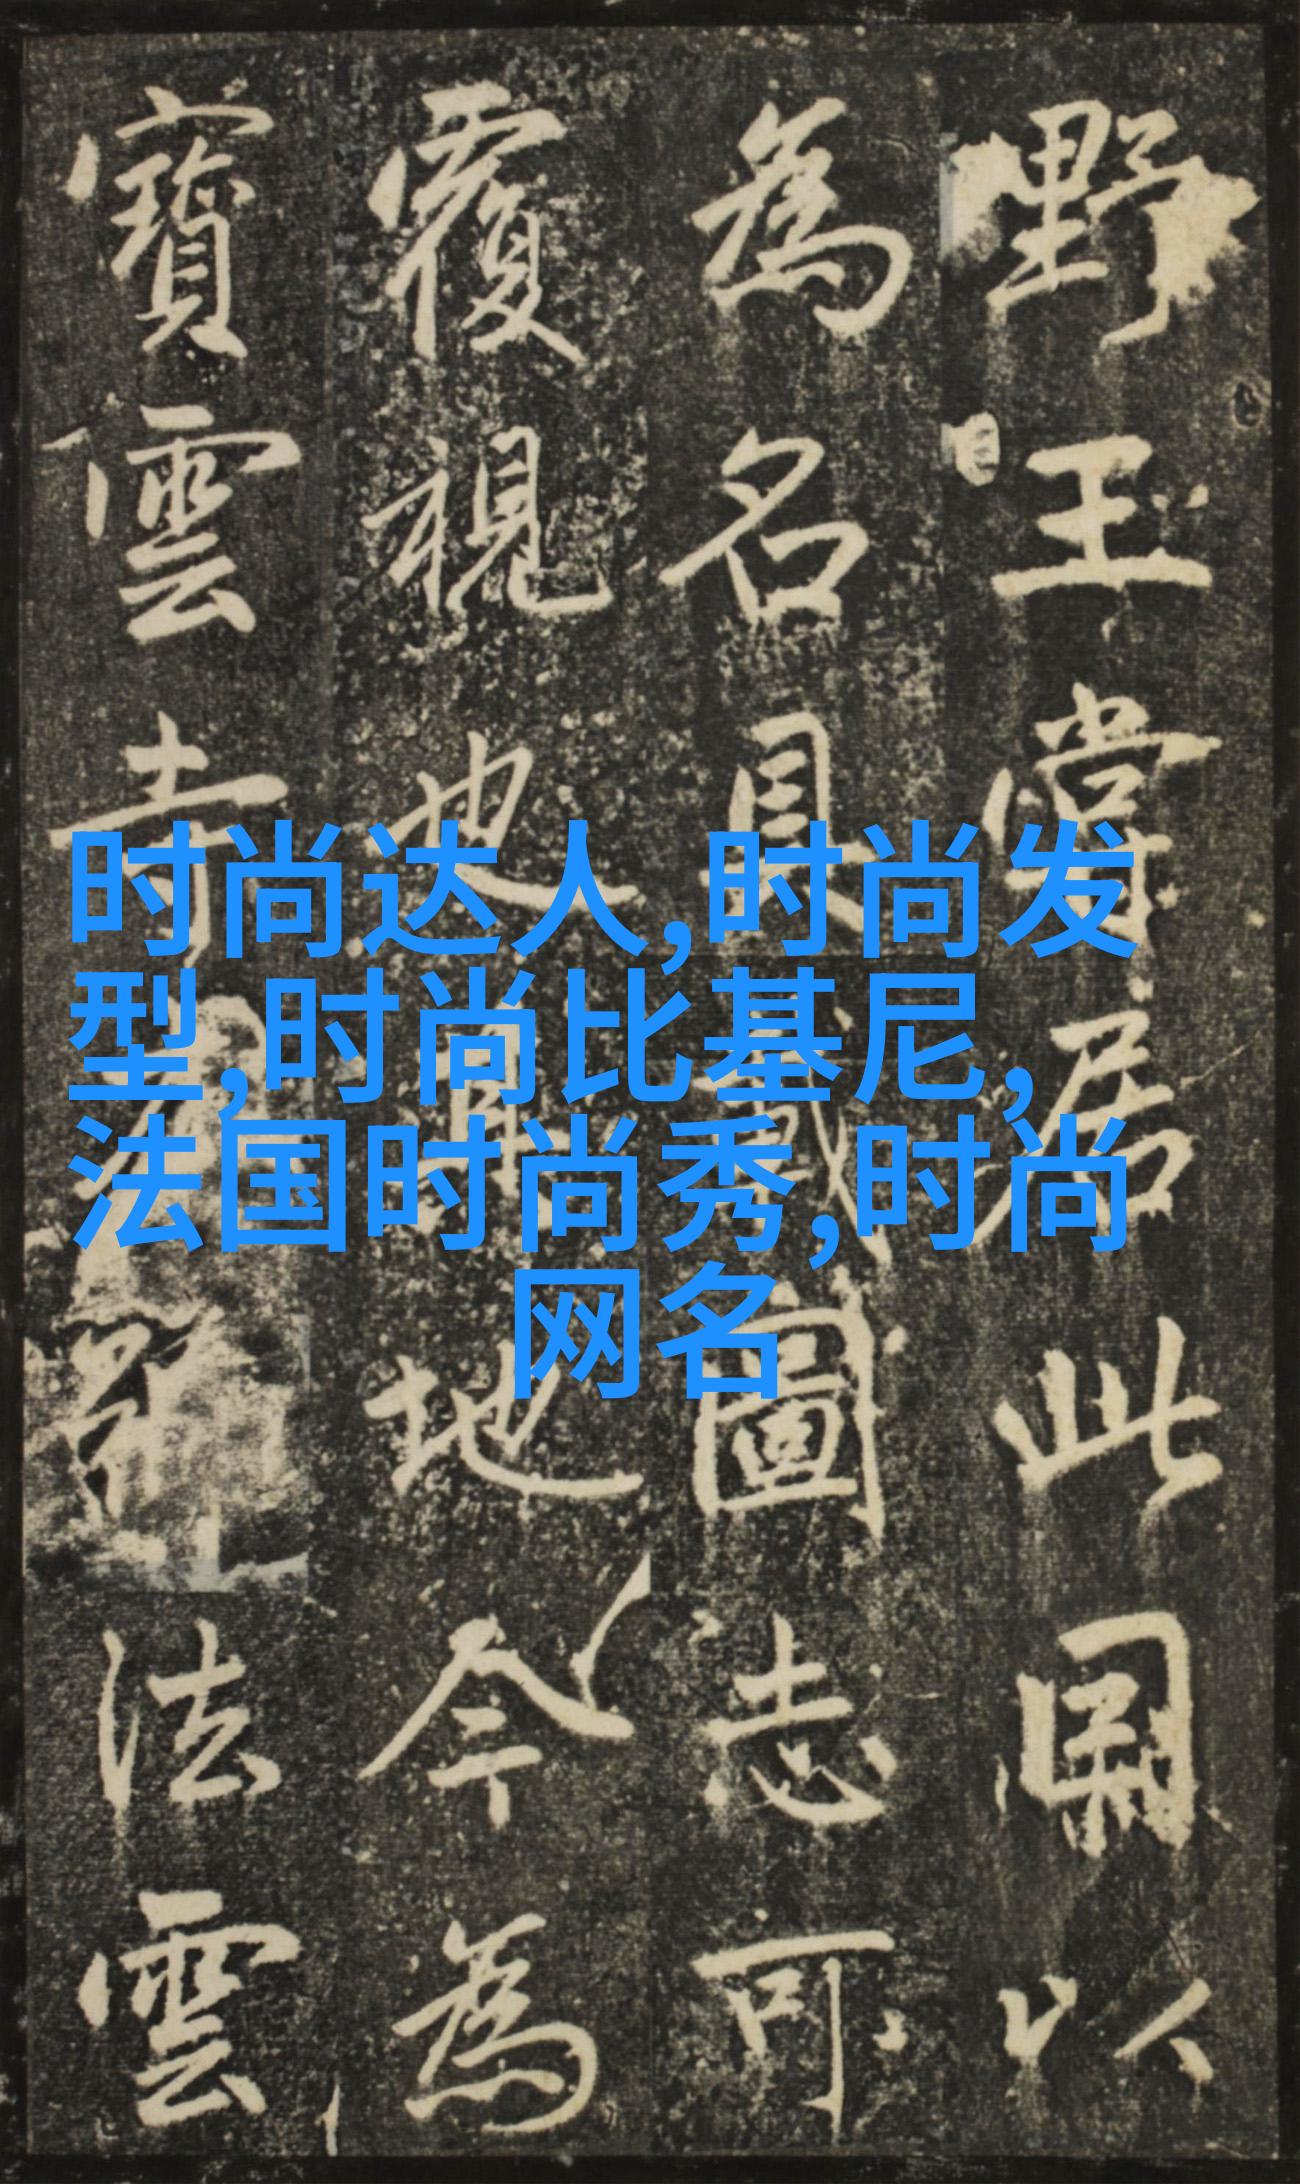 野王嘗居此以
為名具載圖志可
覆視也其地今為
寶雲寺法雲
时尚达人,时尚发
型,时尚比基尼,
法国时尚秀,时尚
网名